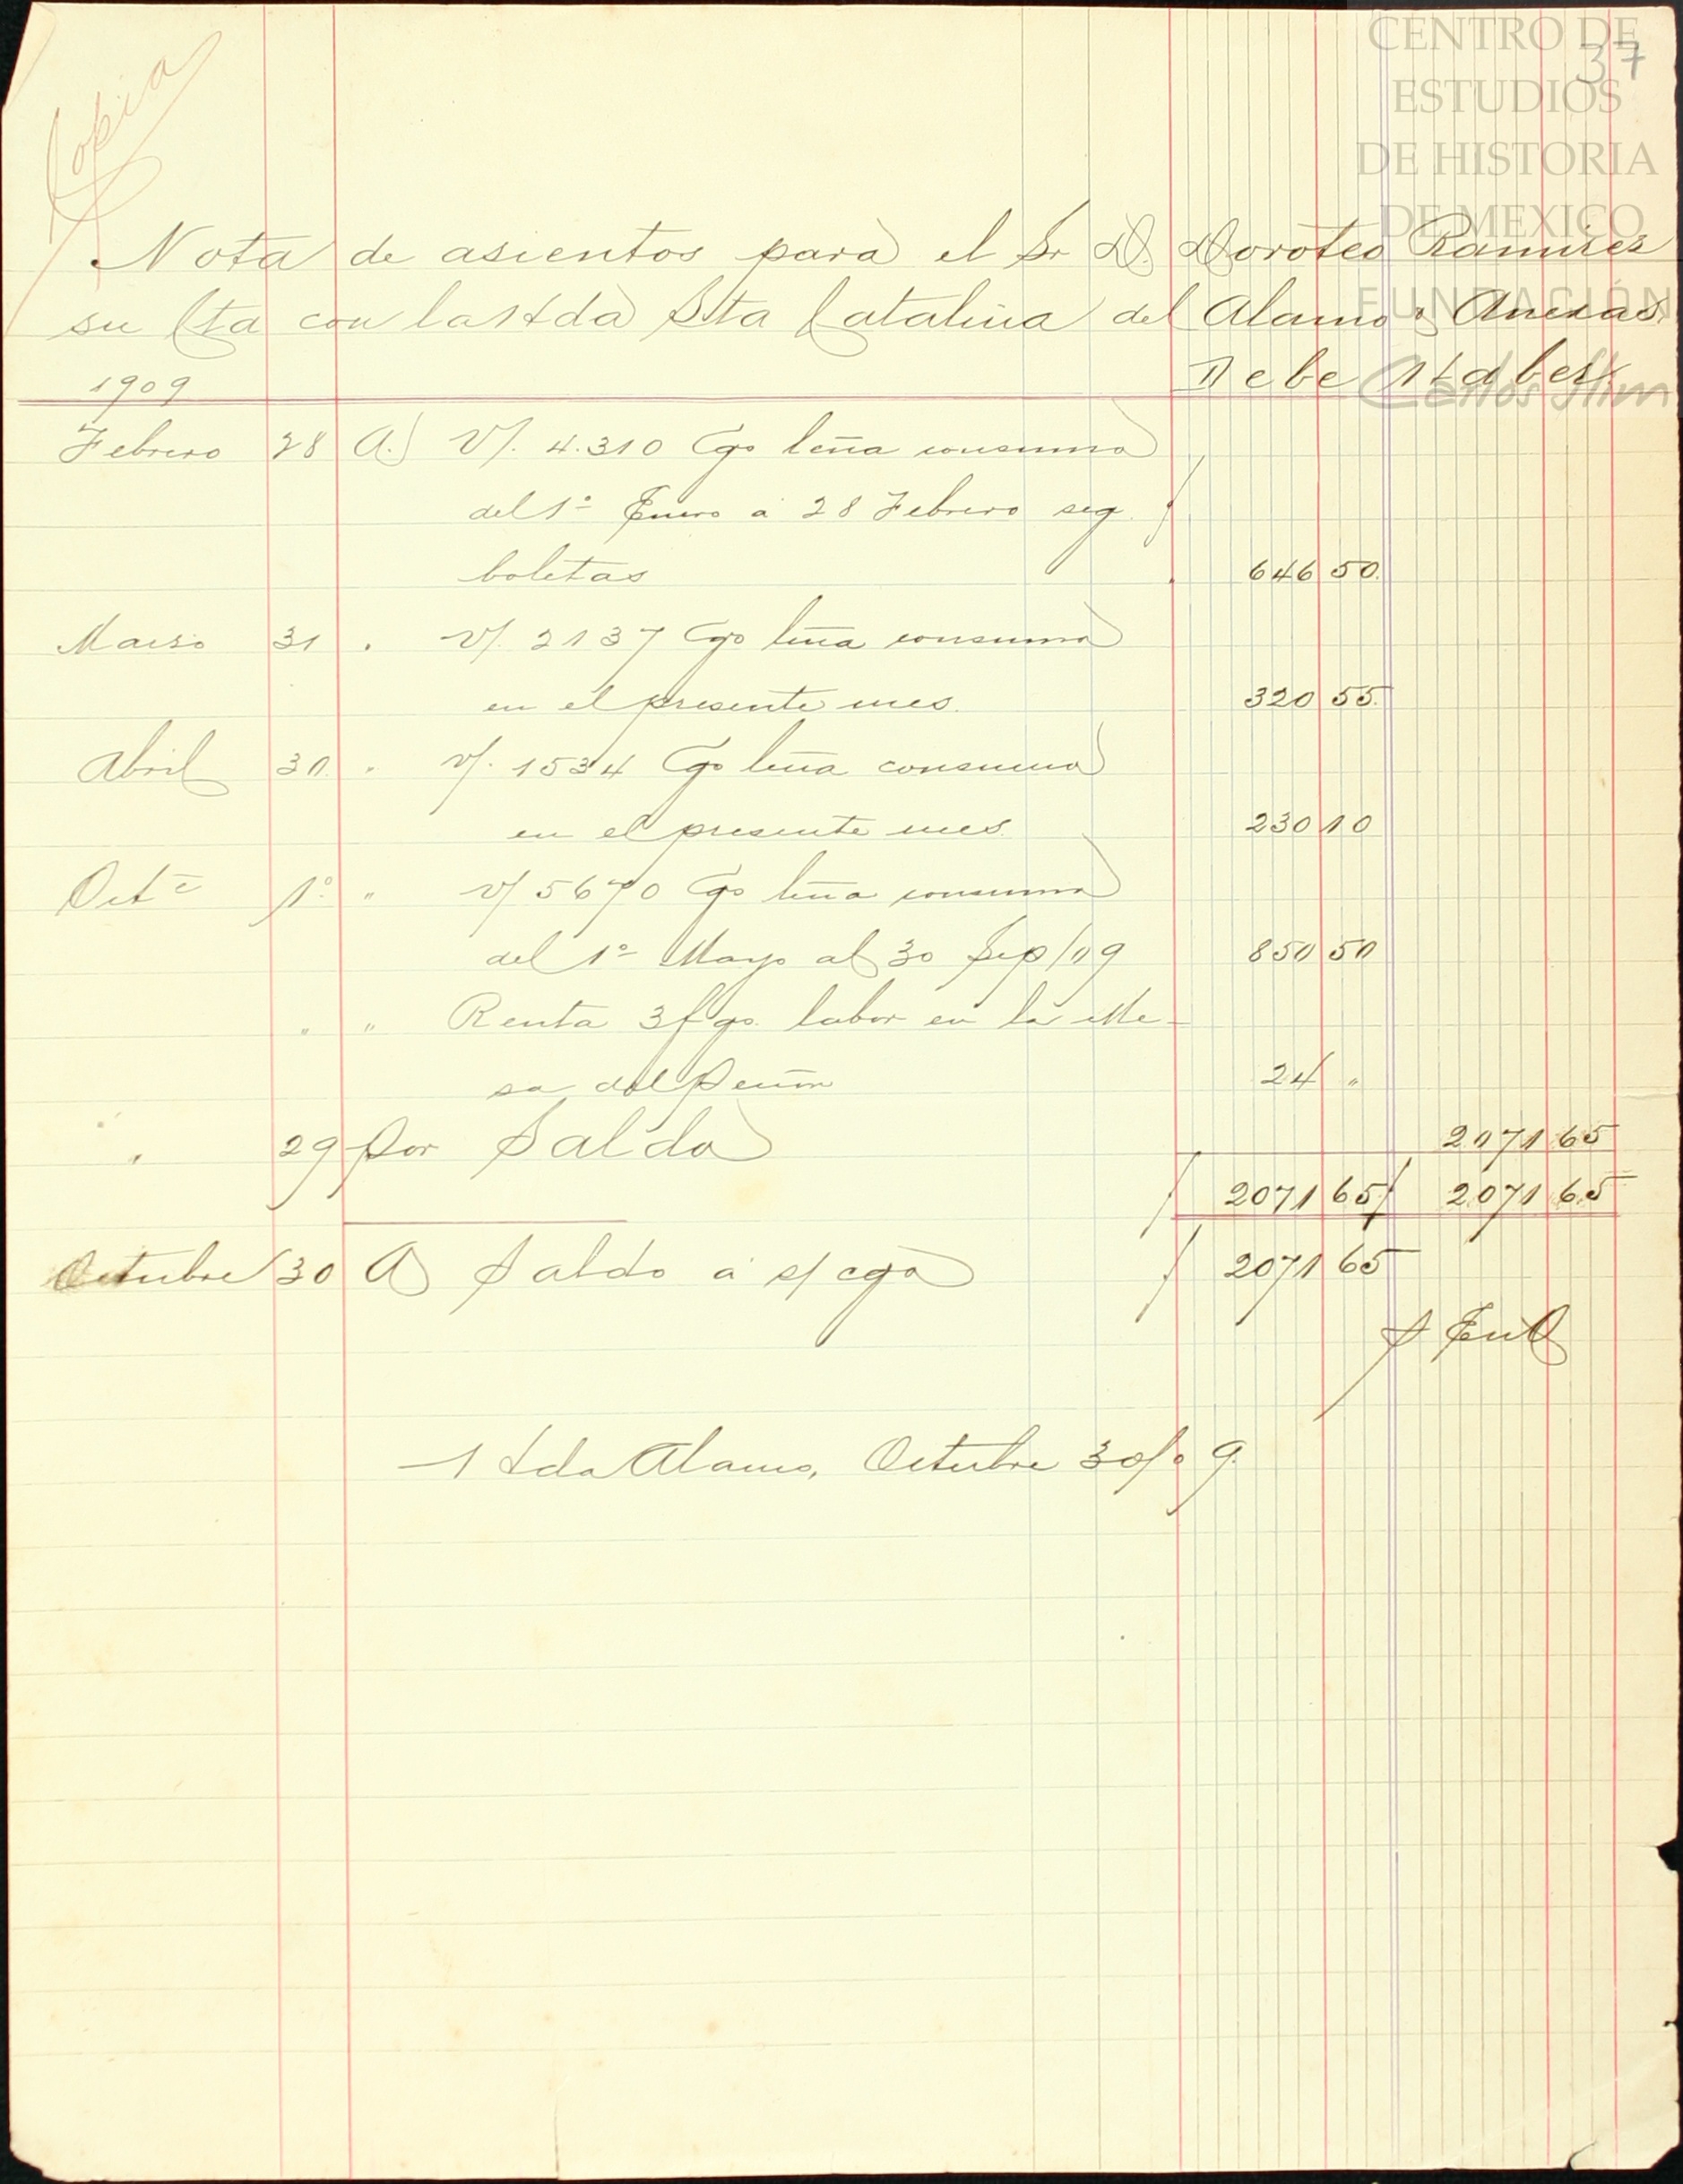 CENTRO DE
37
ESTUDIOS
DE HISTORIA
DE MEXICO
FUNDACIÓN
Carlos Slim
Copia
Nota de asientos para el Sr D. Doroteo Ramirez
su Cta con la Hda Sta Catalina del Alamo y Anexas.
1909 Debe Haber.
Febrero 28 A. V/. 4.310 Cgs leña consumo
del 1º Enero a 28 Febrero seg.
boletas 646 50.
Marzo 31 " V/. 2137 Cgs leña consumo
en el presente mes. 320 55.
Abril 30. " V/. 1534 Cgs leña consumo
en el presente mes. 230 10
Octe 1º " V/ 5670 Cgs leña consumo
del 1º Mayo al 30 Sep/09 850 50
" " Renta 3 fgs. labor en la Me-
sa del Peñon 24 "
" 29 Por Saldo 2071 65
2071 65 2071 65
Octubre 30 A Saldo a s/ cgo 2071 65
S. E. u O
Hda Alamo, Octubre 30/09.